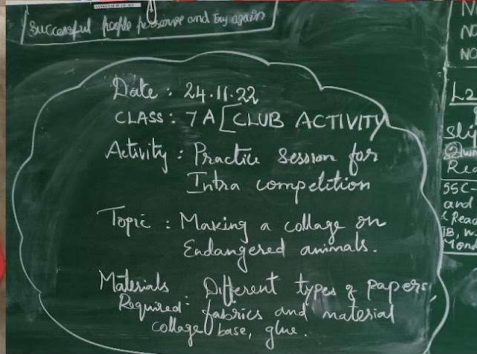 Successful people persevere and try again
Date : 24.11.22
CLASS : 7A [CLUB ACTIVITY
Activity : Practice Session for
Intra competition
Topic : Making a collage on
Endangered animals.
Materials Required : Different types of papers,
fabrics and material
collage base, glue.
L2
SSC-
and